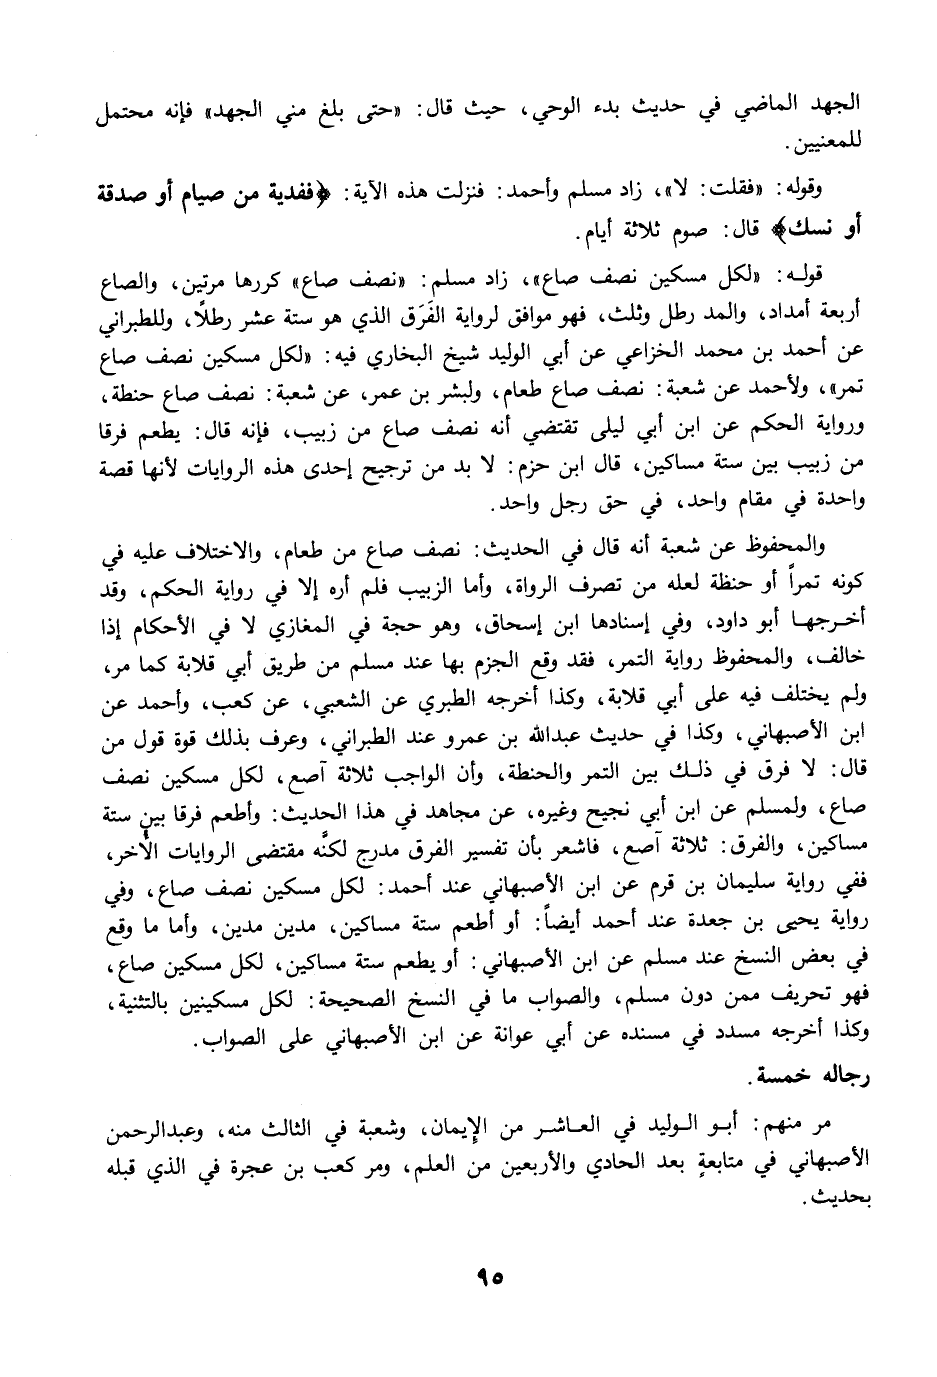 الجهد الماضي في حديث بدء الوحي، حيث قال: «حتى بلغ مني الجهد» فإنه محتمل
للمعنيين.
وقوله: «فقلت: لا»، زاد مسلم وأحمد: فنزلت هذه الآية: ﴿ففدية من صيام أو صدقة
أو نسك﴾ قال: صوم ثلاثة أيام.
قوله: «لكل مسكين نصف صاع»، زاد مسلم: «نصف صاع» كررها مرتين، والصاع
أربعة أمداد، والمد رطل وثلث، فهو موافق لرواية الفَرَق الذي هو ستة عشر رطلاً، وللطبراني
عن أحمد بن محمد الخزاعي عن أبي الوليد شيخ البخاري فيه: «لكل مسكين نصف صاع
تمر»، ولأحمد عن شعبة: نصف صاع طعام، ولبشر بن عمر، عن شعبة: نصف صاع حنطة،
ورواية الحكم عن ابن أبي ليلى تقتضي أنه نصف صاع من زبيب، فإنه قال: يطعم فرقا
من زبيب بين ستة مساكين، قال ابن حزم: لا بد من ترجيح إحدى هذه الروايات لأنها قصة
واحدة في مقام واحد، في حق رجل واحد.
والمحفوظ عن شعبة أنه قال في الحديث: نصف صاع من طعام، والاختلاف عليه في
كونه تمراً أو حنظة لعله من تصرف الرواة، وأما الزبيب فلم أره إلا في رواية الحكم، وقد
أخرجها أبو داود، وفي إسنادها ابن إسحاق، وهو حجة في المغازي لا في الأحكام إذا
خالف، والمحفوظ رواية التمر، فقد وقع الجزم بها عند مسلم من طريق أبي قلابة كما مر،
ولم يختلف فيه على أبي قلابة، وكذا أخرجه الطبري عن الشعبي، عن كعب، وأحمد عن
ابن الأصبهاني، وكذا في حديث عبدالله بن عمرو عند الطبراني، وعرف بذلك قوة قول من
قال: لا فرق في ذلك بين التمر والحنطة، وأن الواجب ثلاثة آصع، لكل مسكين نصف
صاع، ولمسلم عن ابن أبي نجيح وغيره، عن مجاهد في هذا الحديث: وأطعم فرقا بين ستة
مساكين، والفرق: ثلاثة آصع، فاشعر بأن تفسير الفرق مدرج لكنَّه مقتضى الروايات الأُخر،
ففي رواية سليمان بن قرم عن ابن الأصبهاني عند أحمد: لكل مسكين نصف صاع، وفي
رواية يحيى بن جعدة عند أحمد أيضاً: أو أطعم ستة مساكين، مدين مدين، وأما ما وقع
في بعض النسخ عند مسلم عن ابن الأصبهاني: أو يطعم ستة مساكين، لكل مسكين صاع،
فهو تحريف ممن دون مسلم، والصواب ما في النسخ الصحيحة: لكل مسكينين بالتثنية،
وكذا أخرجه مسدد في مسنده عن أبي عوانة عن ابن الأصبهاني على الصواب.
رجاله خمسة.
مر منهم: أبو الوليد في العاشر من الإيمان، وشعبة في الثالث منه، وعبدالرحمن
الأصبهاني في متابعةٍ بعد الحادي والأربعين من العلم، ومر كعب بن عجرة في الذي قبله
بحديث.
٩٥